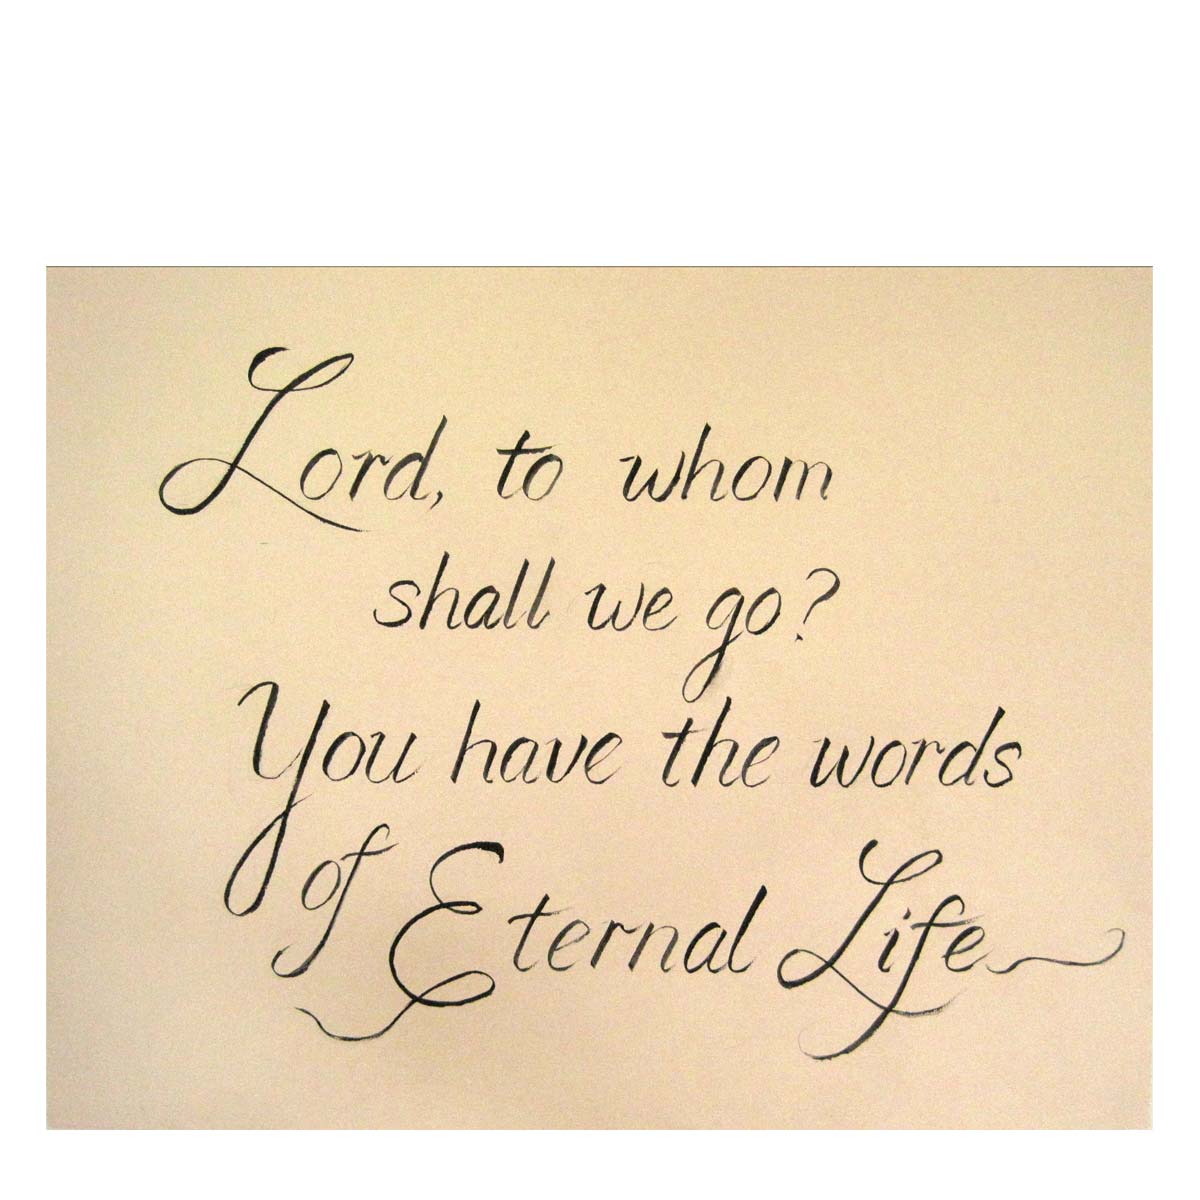 Lord, to whom
shall we go?
You have the words
of Eternal Life